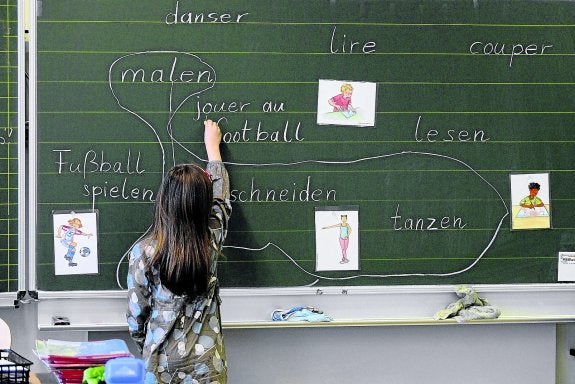 danser
lire
couper
malen
jouer au
football
lesen
Fußball
spielen
schneiden
tanzen